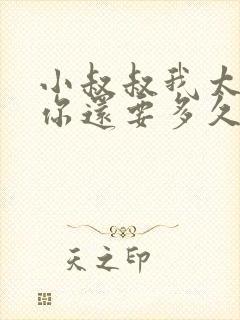 小叔叔我大
你還要多久
天之印